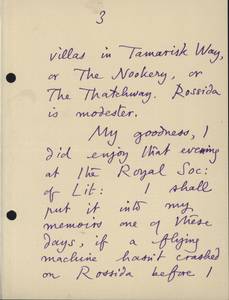 3
villas in Tamarisk Way,
or The Nookery, or
The Thatchway. Rossida
is modester.
My goodness, I
did enjoy that evening
at the Royal Soc:
of Lit: I shall
put it into my
memoirs one of these
days, if a flying
machine hasn't crashed
on Rossida before I